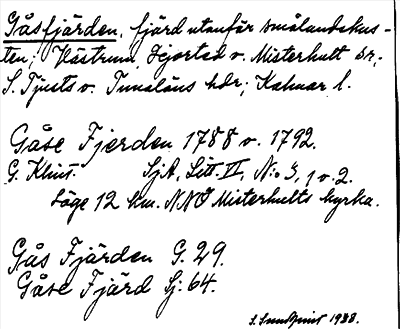 Gåsfjärden, fjärd utanför smålandskus-
ten; Västrum, Lofta v. Misterhult sr;
S. Tjusts v. Tunaläns hdr; Kalmar l.
Gåse Fjerden 1788 v. 1792.
G. Klint. SjA, Litt. II, N:o 3, 1 v. 2.
Läge 12 km. NNO Misterhults kyrka.
Gås Fjärden G. 29.
Gåse Fjärd Sj. 64.
S. Lundquist 1938.